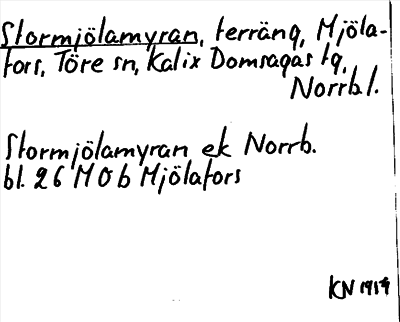 Stormjölamyran, terräng, Mjöla-
fors, Töre sn, Kalix Domsagas tg,
Norrb.l.
Stormjölamyran ek Norrb.
bl. 26 M 0 b Mjölafors
KN 1974